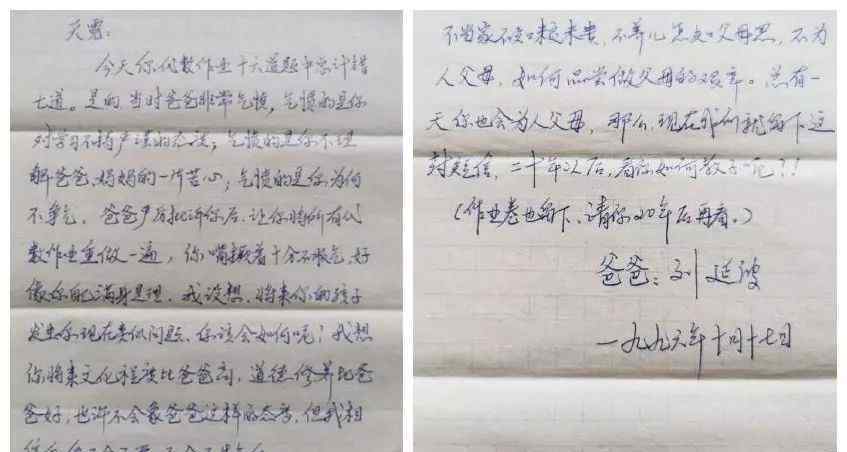 天愚:
今天你代数作业十六道题中总计错
七道。是的,当时爸爸非常气愤,气愤的是你
对学习不持严谨的态度;气愤的是你不理
解爸爸、妈妈的一片苦心;气愤的是你为何
不争气。爸爸严厉批评你后,让你将所有代
数作业重做一遍,你嘴撅着十分不服气,好
像你自己满身是理。我设想,将来你的孩子
发生你现在类似问题,你该会如何呢?我想
你将来文化程度比爸爸高,道德修养比爸
爸好,也许不会象爸爸这样的态度,但我相
不当家不知柴米贵,不养儿怎知父母恩,不为
人父母,如何品尝做父母的艰辛。总有一
天你也会为人父母,那么,现在我们就留下这
封短信,二十年以后,看你如何教子呢?!
(作业卷也留下,请你20年后再看。)
爸爸:刘延波
一九九六年十月十七日